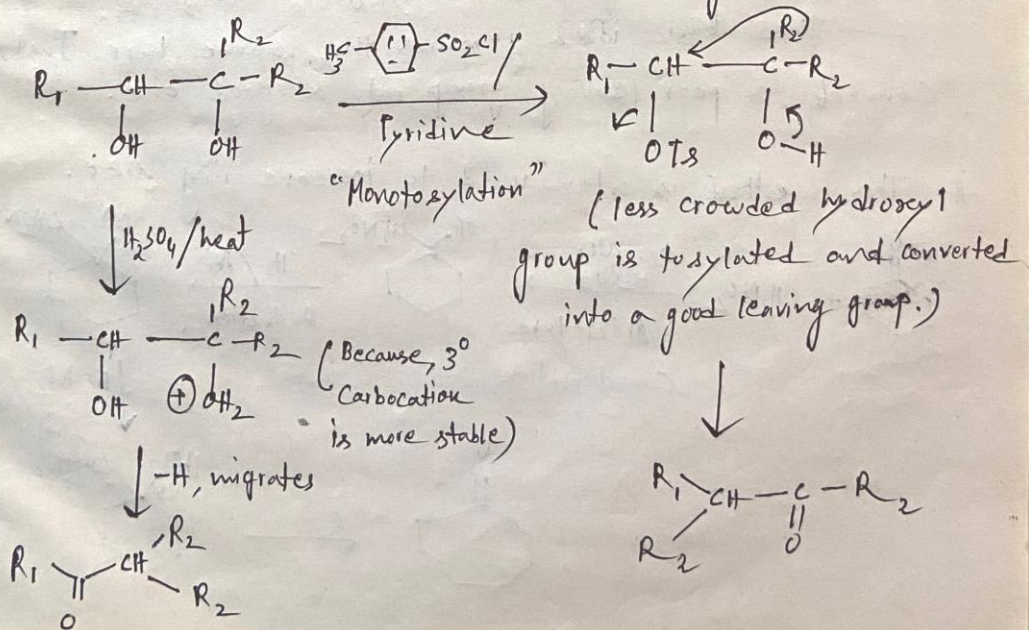 R₁—CH—C—R₂
R₂
OH OH
H₃C— —SO₂Cl /
Pyridine
"Monotosylation"
R₁—CH—C—R₂
R₂
OTs O—H
(less crowded hydroxyl
group is tosylated and converted
into a good leaving group.)
H₂SO₄/heat
R₁—CH—C—R₂
R₂
OH ⊕OH₂
(Because, 3°
Carbocation
is more stable)
-H, migrates
R₁ CH R₂
R₂
O
R₁ CH—C—R₂
R₂ O